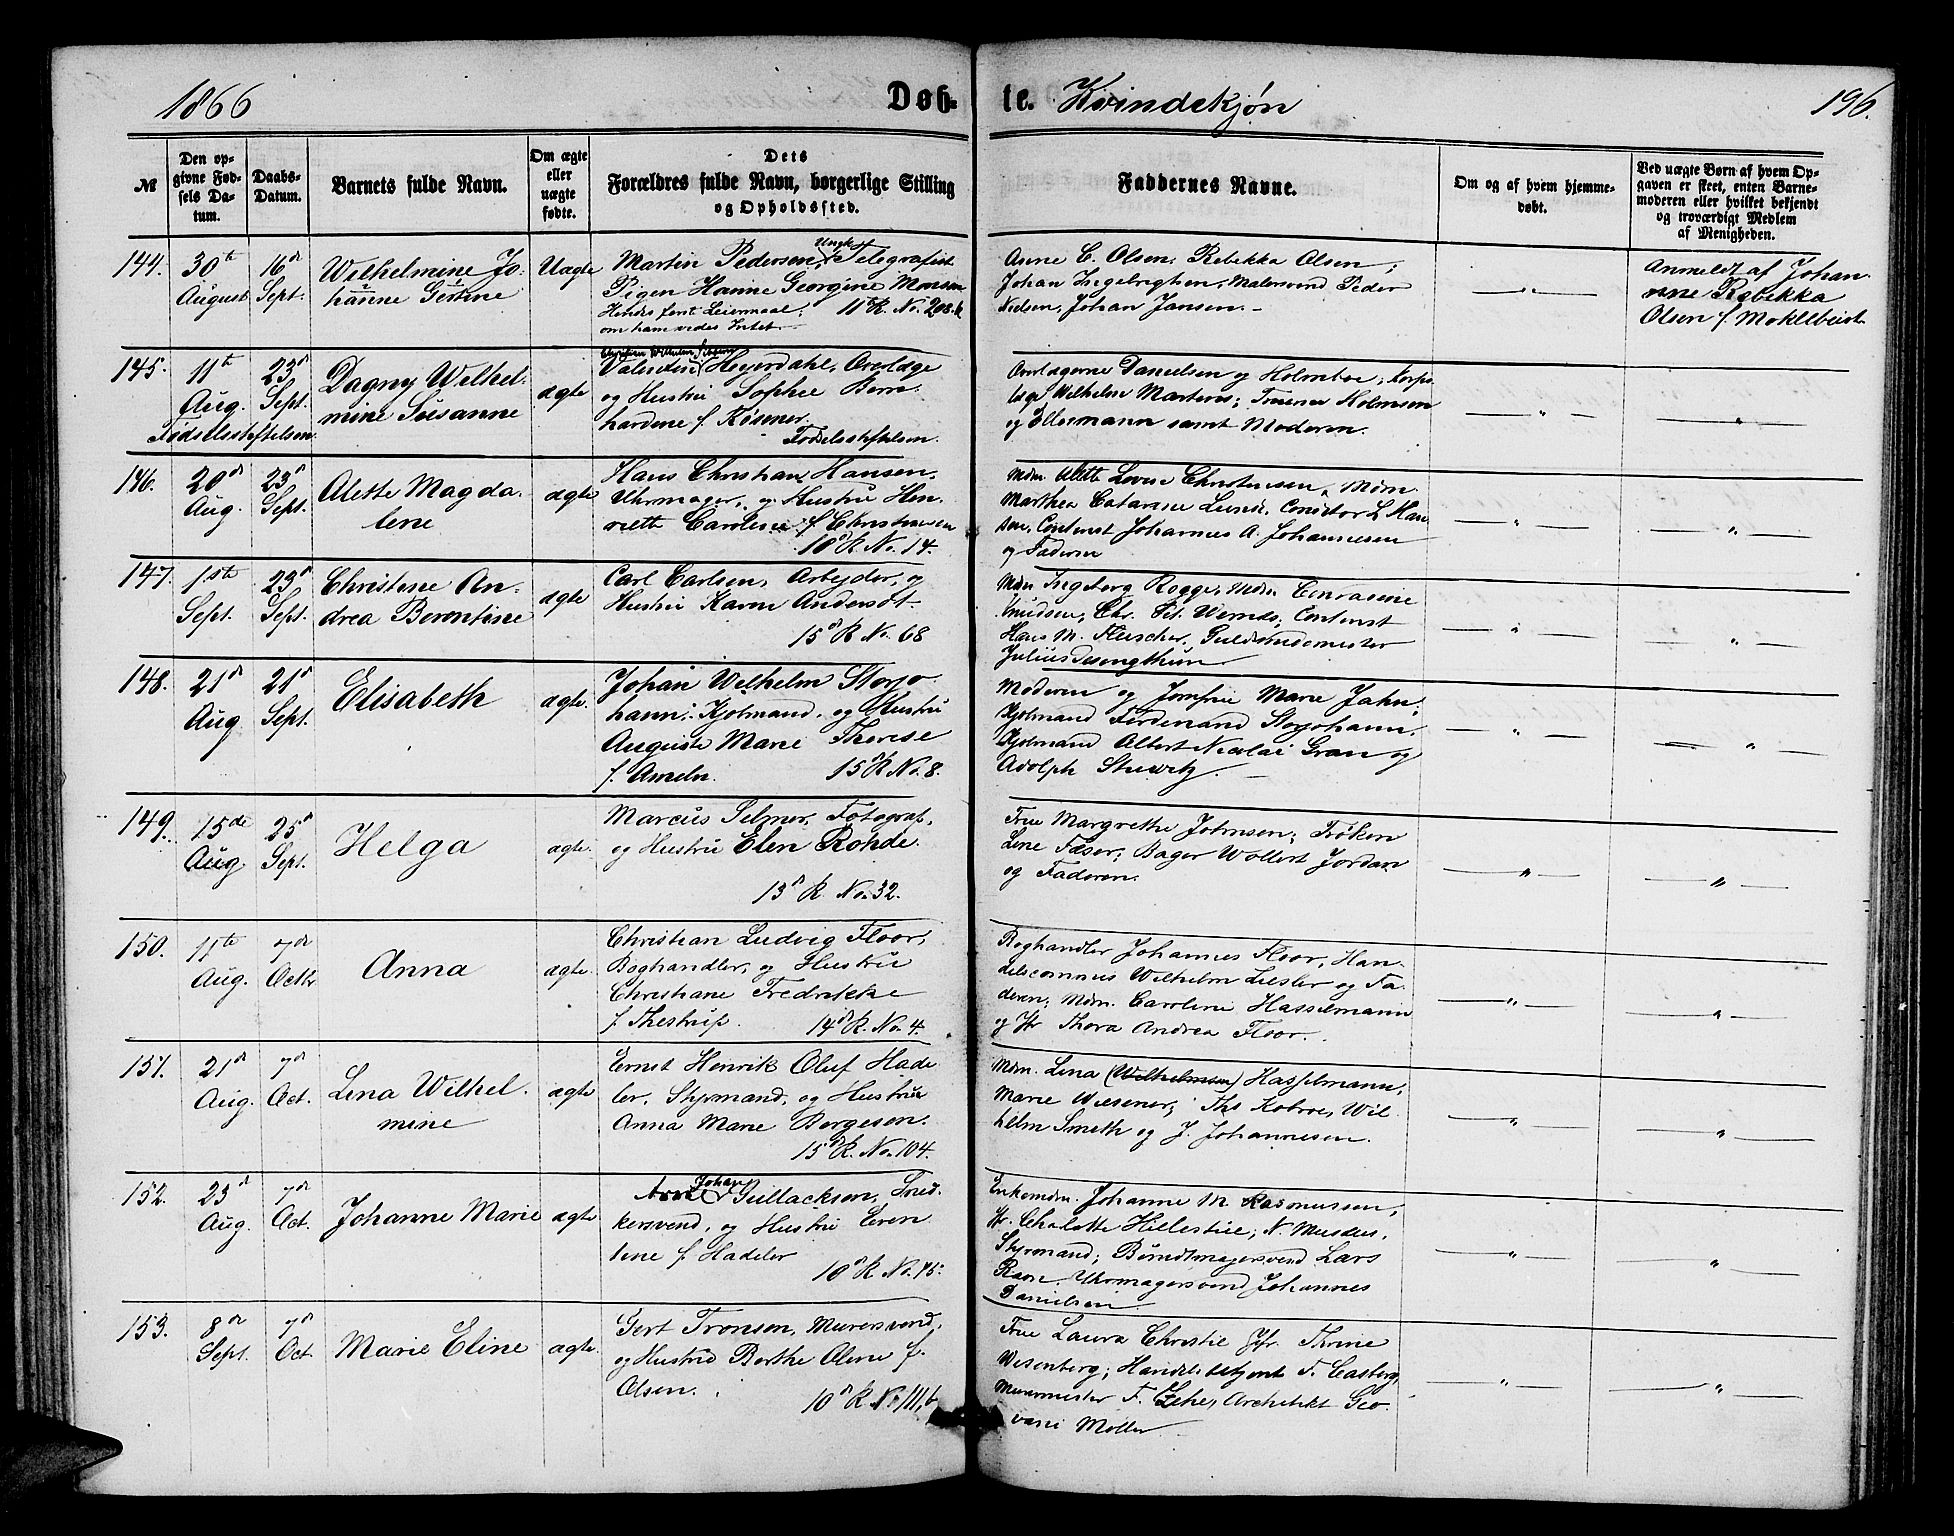 1866 Døb- te. Kvindekjøn 196.
№
Den op-
givne Fød-
sels Da-
tum.
Daabs-
Datum.
Barnets fulde Navn.
Om ægte
eller
uægte
fødte.
Dets
Forældres fulde Navn, borgerlige Stilling
og Opholdssted.
Faddernes Navne.
Om og af hvem hjemme-
døbt.
Ved uægte Børn af hvem Op-
gaven er skeet, enten Barne-
moderen eller hvilket bekjendt
og troværdigt Medlem
af Menigheden.
144.
30te
August
16de
Sept.
Wilhelmine Jo-
hanne Gesine
Uægte
Martin Pedersen, Ungk. Telegrafist
Pigen Hanne Georgine Monsen
Hendes første Leiermaal;
om ham vides Intet. 11te R. No. 208.b
Anne C. Olsen, Rebekka Olsen;
Johan Ingebrigtsen, Malersvend Peder
Nielsen, Johan Jansen.
"
Anmeldt af Johan-
nne Rebekka
Olsen f. Moklebust
145.
11te
Aug.
23d
Sept.
Fødselsstiftelsen
Dagny Wilhel-
mine Susanne
ægte
Christian Wilhelm
Valentin Heyerdahl, Overlæge
og Hustru Sophie Bern-
hardine f. Kösener.
Fødselsstiftelsen.
Overlægerne Danielsen og Holmboe; Korps-
læge Wilhelm Martens; Fruerne Holmsen
og Ellermann samt Moderen.
"
"
146.
20de
Aug.
23d
Sept.
Alette Magda-
lene
ægte
Hans Christian Hansen,
Uhrmager, og Hustru Hen-
riette Caroline f. Christensen
10de R. No. 14.
Mdm. Alette Lovise Christensen, Mdm.
Marthea Catarine Lund, Conditor L. Han-
sen, Contorist Johannes A. Johannesen
og Faderen
"
"
147.
1ste
Sept.
23d
Sept.
Christine An-
drea Berentine
ægte
Carl Carlsen, Arbejder, og
Hustru Karen Andersdt.
15de R. No. 68
Mdm. Ingeborg Rogge, Mdm.
Knudsen, Chr. Fr. Wernds, Contorist
Hans M. Fleischer, Guldsmedemester
Julius Desongthun
"
"
148.
21de
Aug
21de
Sept.
Elisabeth
ægte.
Johan Wilhelm Storjo-
hann, Kjøbmand, og Hustru
Auguste Marie Therese
f. Ameln. 15de R. No. 8.
Moderen og Jomfrue Marie Jahn;
Kjøbmand Ferdinand Storjohann,
Kjøbmand Albert Nicolai Gran og
Adolph Stuwitz.
"
"
149.
15de
Aug
25d
Sept.
Helga
ægte.
Marcus Selmer, Fotograf,
og Hustru Elen Rohde.
13de R. No. 32.
Frue Margrethe Johnsen; Frøken
Line Fæser; Bager Wollert Jordan
og Faderen.
"
"
150.
11te
Aug.
7de
Octbr
Anna
ægte.
Christian Ludvig Floor,
Boghandler, og Hustru
Christiane Fredrikke
f. Thestrup. 14de R. No. 4.
Boghandler Johannes Floor, Han-
delscommis Wilhelm Liesler og Fa-
deren; Mdm. Caroline Hasselmann
og Jfr Thora Andrea Floor.
"
"
151.
21de
Aug.
7de
Oct.
Lina Wilhel-
mine
ægte
Ernst Henrik Oluf Hade-
ler, Styrmand, og Hustru
Anna Marie Børgesen.
15de R. No. 104.
Mdm. Lina (Wilhelmsen) Hasselmann,
Marie Wiesener; Ths Kobroe, Wil-
helm Smith og J. Johannesen.
"
"
152.
23d
Aug.
7de
Oct.
Johanne Marie
ægte
Johan Gullacksen, Sned-
kersvend, og Hustru Even-
tine f. Hadeler
10de R. No. 75.
Enkemdm. Johanne M. Rasmussen,
Jfr. Chalotte Hillestue; N. Musdus,
Styrmand; Bundtmagersvend Lars
Ravn, Uhrmagersvend Johannes
Danielsen
"
"
153.
8de
Sept.
7de
Oct.
Marie Eline
ægte.
Gert Tronsen, Murersvend,
og Hustru Berthe Oline f.
Olsen.
10de R. No. 111,b
Frue Laura Christie, Jfr. Thrine
Wesenberg; Handelsbetjent F. Casberg,
Murermester F. Zehe, Architekt Gio-
vani Møller
"
"